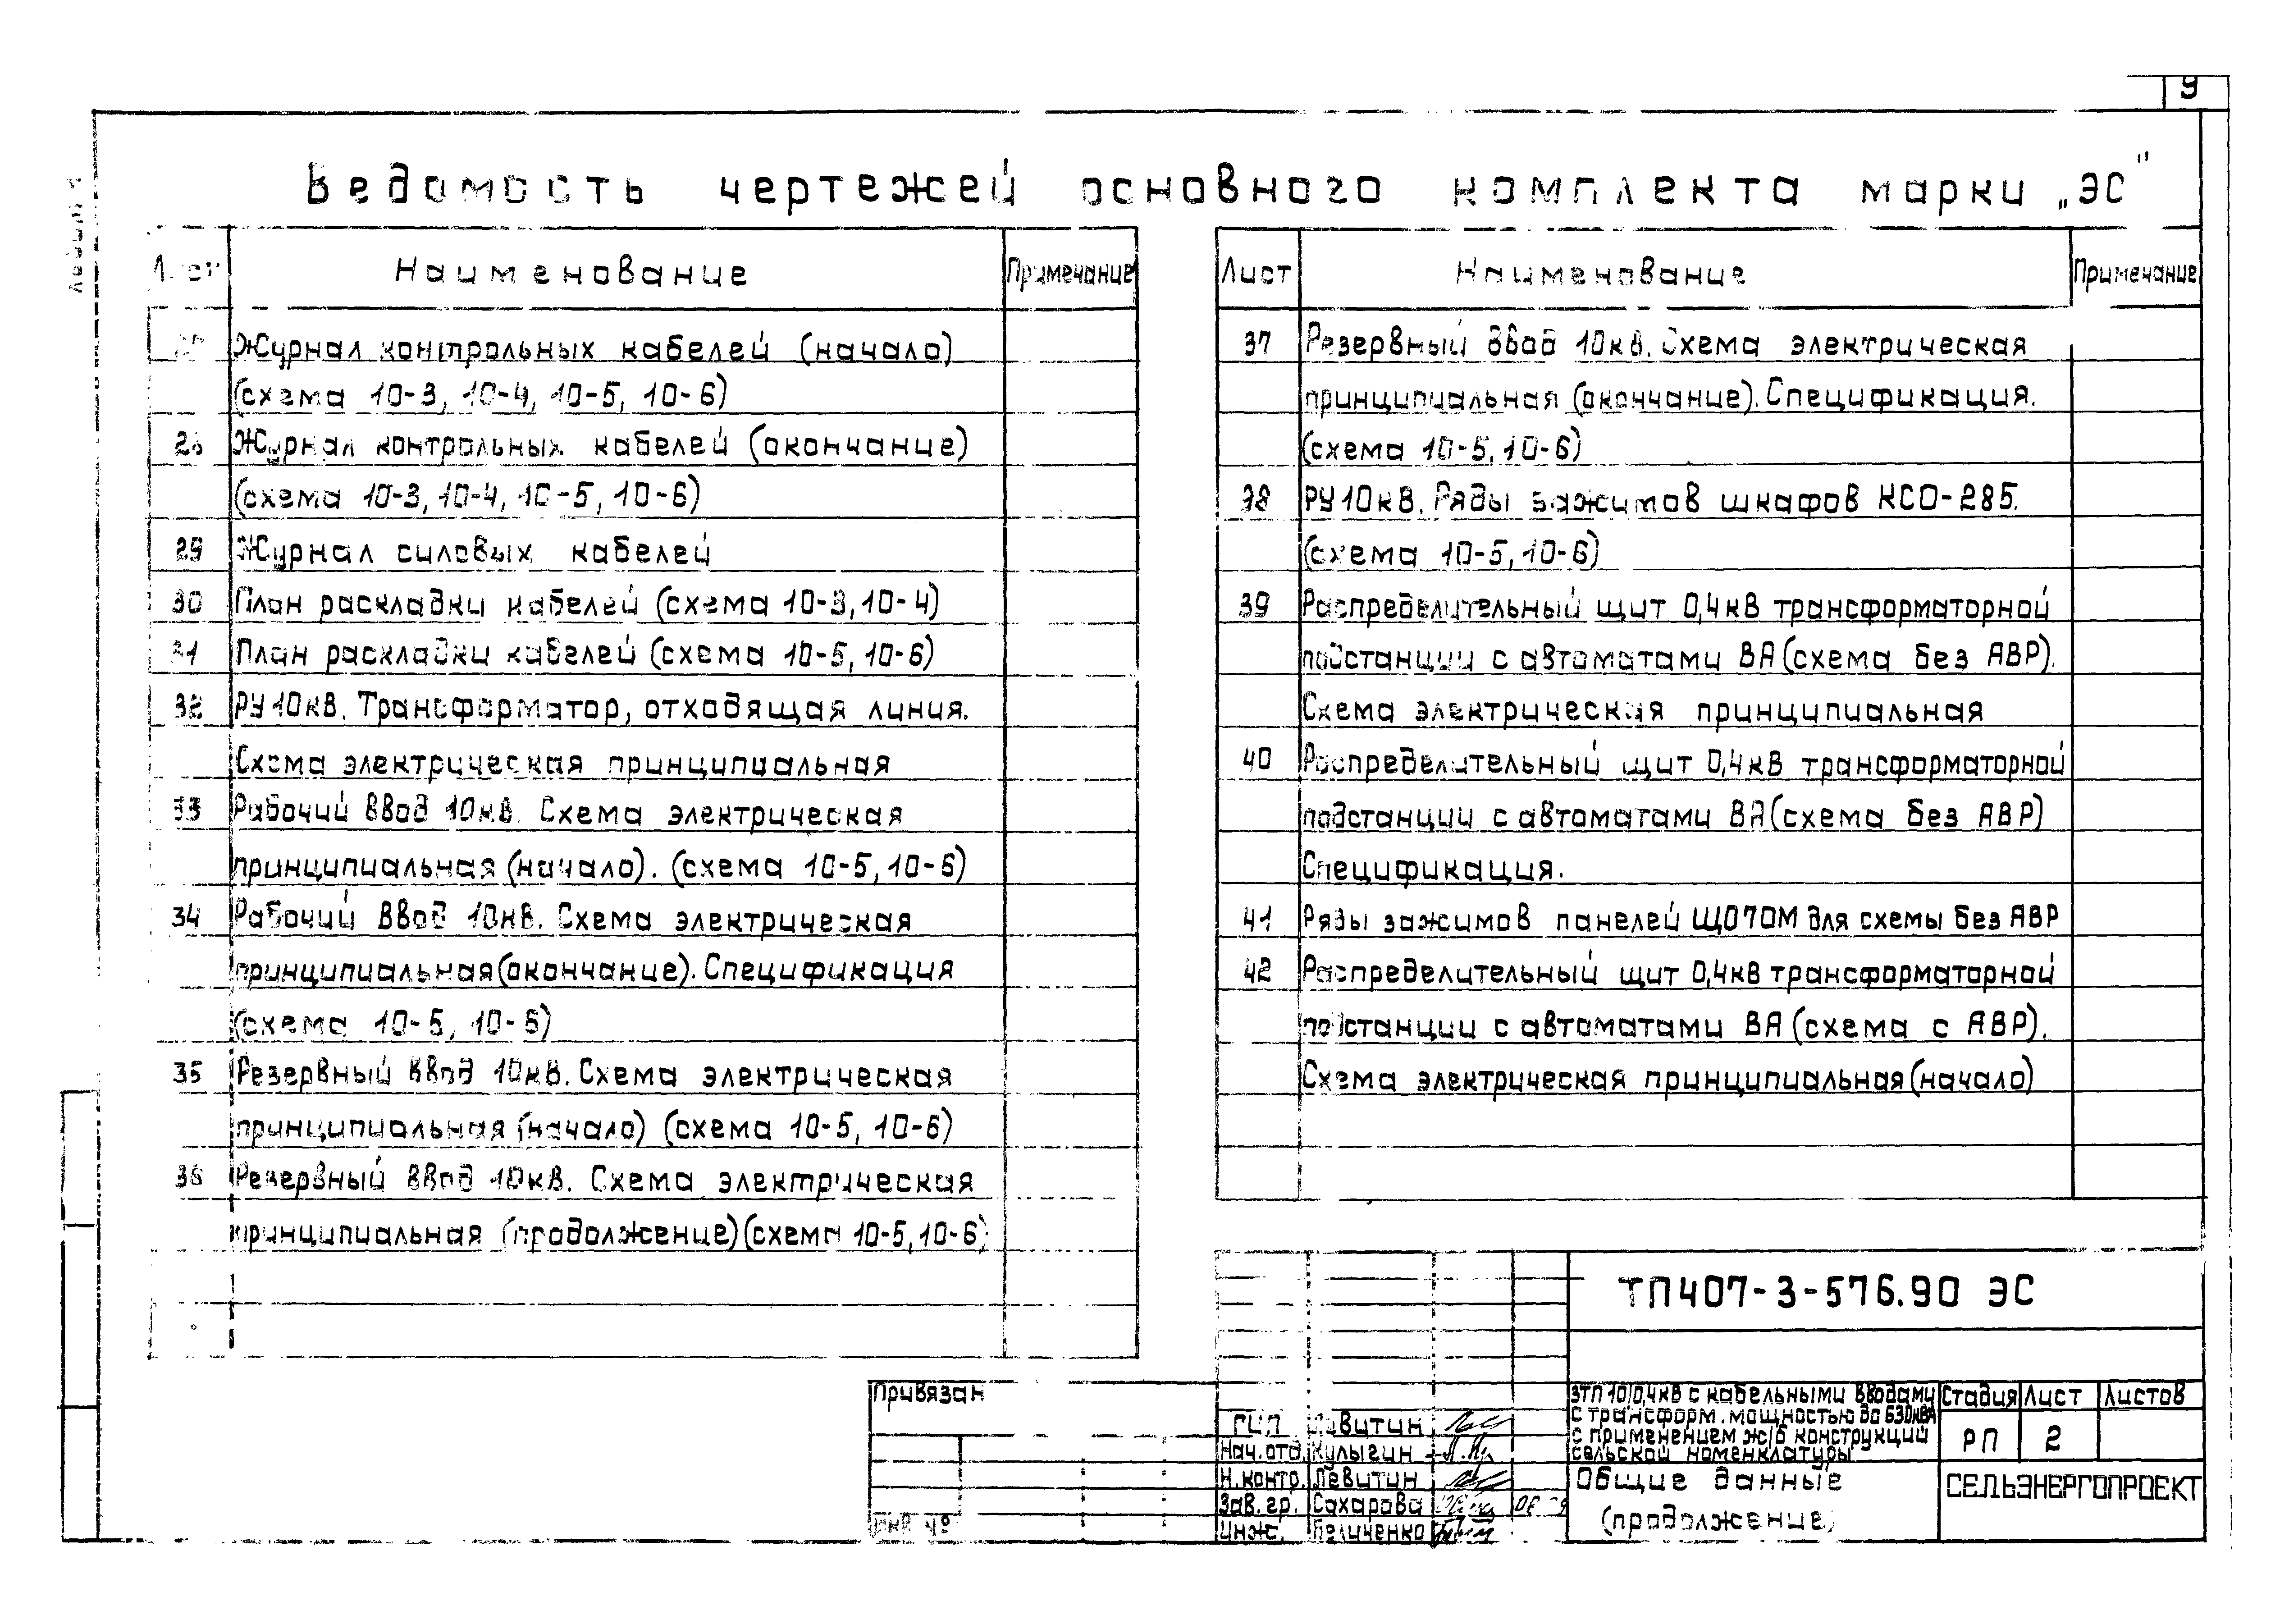 9
Ведомость чертежей основного комплекта марки „ЭС"
Лист Наименование Примечание
Журнал контрольных кабелей (начало)
(схема 10-3, 10-4, 10-5, 10-6)
28 Журнал контрольных кабелей (окончание)
(схема 10-3, 10-4, 10-5, 10-6)
29 Журнал силовых кабелей
30 План раскладки кабелей (схема 10-3, 10-4)
31 План раскладки кабелей (схема 10-5, 10-6)
32 РУ10кВ. Трансформатор, отходящая линия.
Схема электрическая принципиальная
33 Рабочий ввод 10кВ. Схема электрическая
принципиальная (начало). (схема 10-5, 10-6)
34 Рабочий ввод 10кВ. Схема электрическая
принципиальная (окончание). Спецификация
(схема 10-5, 10-6)
35 Резервный ввод 10кВ. Схема электрическая
принципиальная (начало) (схема 10-5, 10-6)
36 Резервный ввод 10кВ. Схема электрическая
принципиальная (продолжение) (схема 10-5, 10-6)
Лист Наименование Примечание
37 Резервный ввод 10кВ. Схема электрическая
принципиальная (окончание). Спецификация.
(схема 10-5, 10-6)
38 РУ10кВ. Ряды зажимов шкафов КСО-285.
(схема 10-5, 10-6)
39 Распределительный щит 0,4кВ трансформаторной
подстанции с автоматами ВА (схема без АВР).
Схема электрическая принципиальная
40 Распределительный щит 0,4кВ трансформаторной
подстанции с автоматами ВА (схема без АВР)
Спецификация.
41 Ряды зажимов панелей ЩО70М для схемы без АВР
42 Распределительный щит 0,4кВ трансформаторной
подстанции с автоматами ВА (схема с АВР).
Схема электрическая принципиальная (начало)
ТП407-3-576.90 ЭС
Привязан
Инв №
ГИП Левитин
Нач.отд. Кулыгин
Н.контр. Левитин
Зав.гр. Сахарова
Инж. Беличенко
ЗТП 10/0,4кВ с кабельными вводами
с трансформ. мощностью до 630кВА
с применением ж/б конструкций
сельской номенклатуры
Стадия Лист Листов
РП 2
Общие данные
(продолжение)
СЕЛЬЭНЕРГОПРОЕКТ